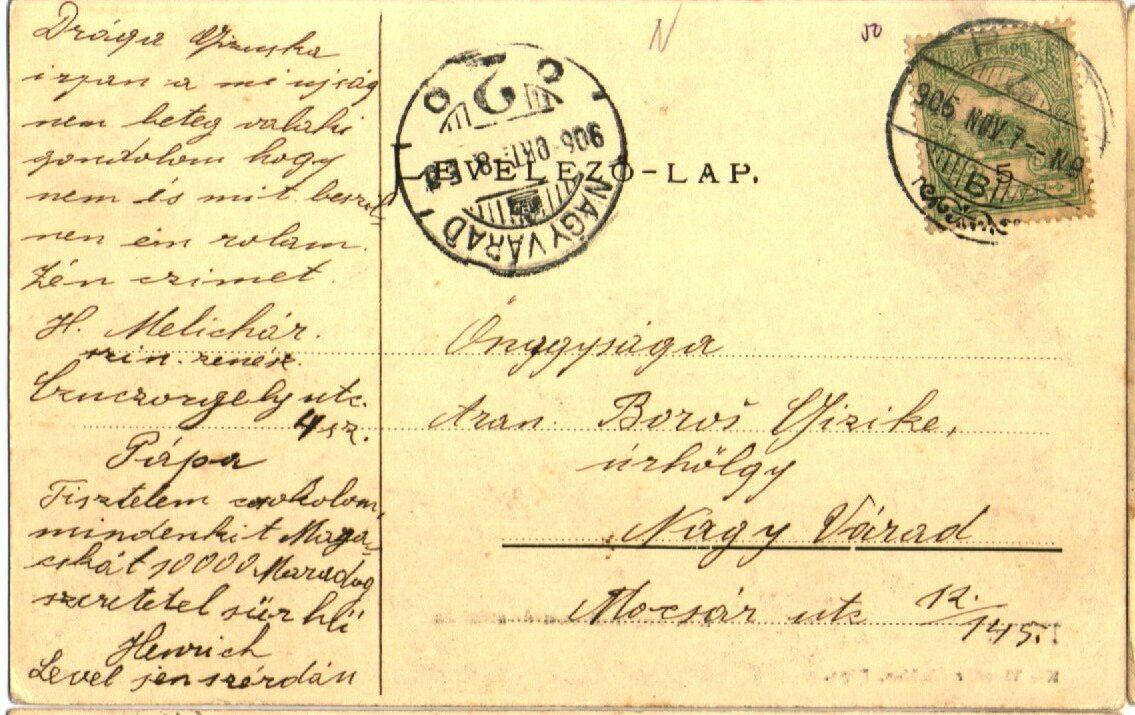 Drága Gizuska
irjan a mi ujság
nem beteg valaki
gondolom hogy
nem és mit beszél-
nen én rolam.
Zén czimet.
H. Melichár.
szin. zenész.
Czuczorgely utc.
4 sz.
Pápa
Tisztelem csokolom,
mindenkit Maga-
cskát 10000 Maradog
szeretetel sür hű
Henrich
Level jen szérdán
N
50
NAGYVÁRAD
906 OKT. 8
2
905 NOV. 7 - N 8
5
B
LEVELEZŐ-LAP.
Önagysága
Aran. Boroš Gizike,
úrhölgy
Nagy Várad
Mocsár utc 12./145.